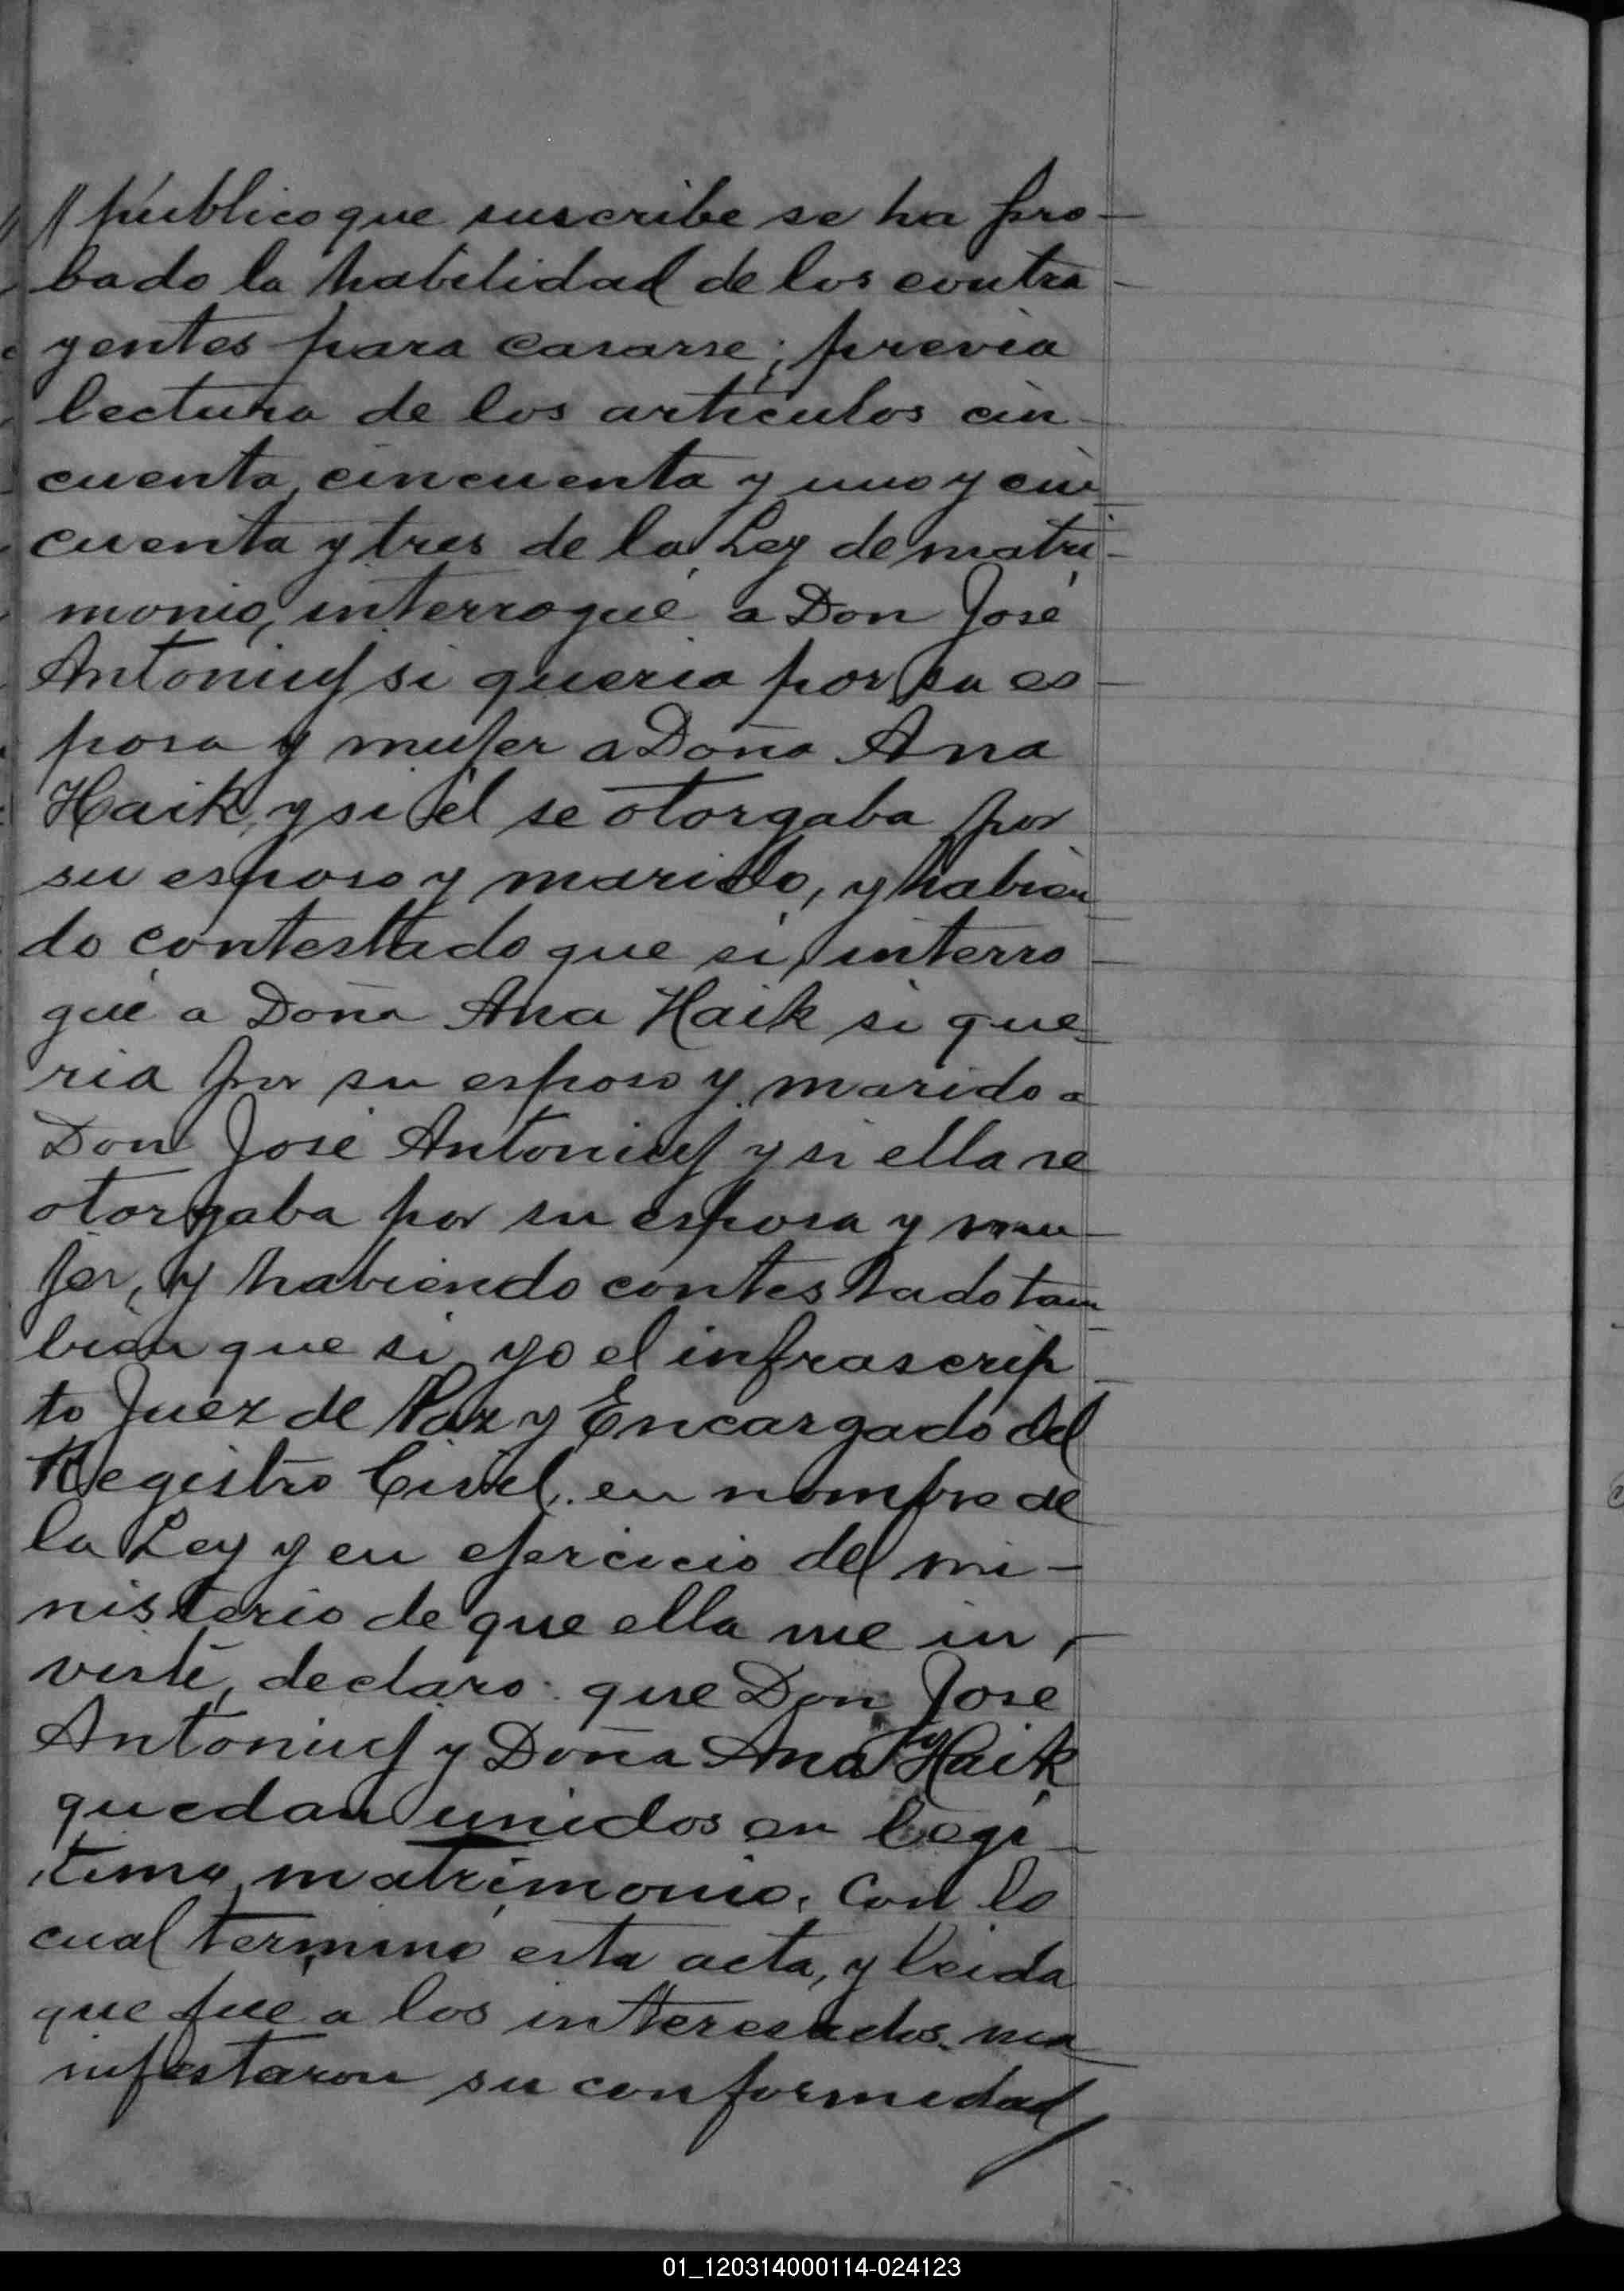 // público que suscribe se ha pro-
bado la habilidad de los contra-
yentes para casarse; previa
lectura de los artículos cin-
cuenta, cincuenta y uno y cin-
cuenta y tres de la Ley de matri-
monio, interrogué a Don José
Antoniuf si queria por su es-
posa y mujer a Doña Ana
Haik, y si él se otorgaba por
su esposo y marido, y habien-
do contestado que si, interro-
gué a Doña Ana Haik si que-
ria por su esposo y marido a
Don José Antoniuf y si ella se
otorgaba por su esposa y mu-
jer, y habiendo contestado tam-
bien que si, yo el infrascrip-
to Juez de Paz y Encargado del
Registro Civil, en nombre de
la Ley y en ejercicio del mi-
nisterio de que ella me in-
viste, declaro: que Don José
Antoniuf y Doña Ana Haik
quedan unidos en legí-
timo matrimonio. Con lo
cual terminó esta acta, y leida
que fué a los interesados, ma-
nifestaron su conformidad
01_120314000114-024123